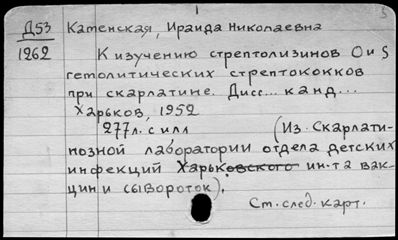 5
Д53 Каменская, Ираида Николаевна
1262 К изучению стрептолизинов О и S
гемолитических стрептококков
при скарлатине. Дисс... канд...
Харьков, 1952
277л. с илл (Из Скарлати-
нозной лаборатории отдела детских
инфекций Харьковского ин-та вак-
цин и сывороток).
Ст. след. карт.